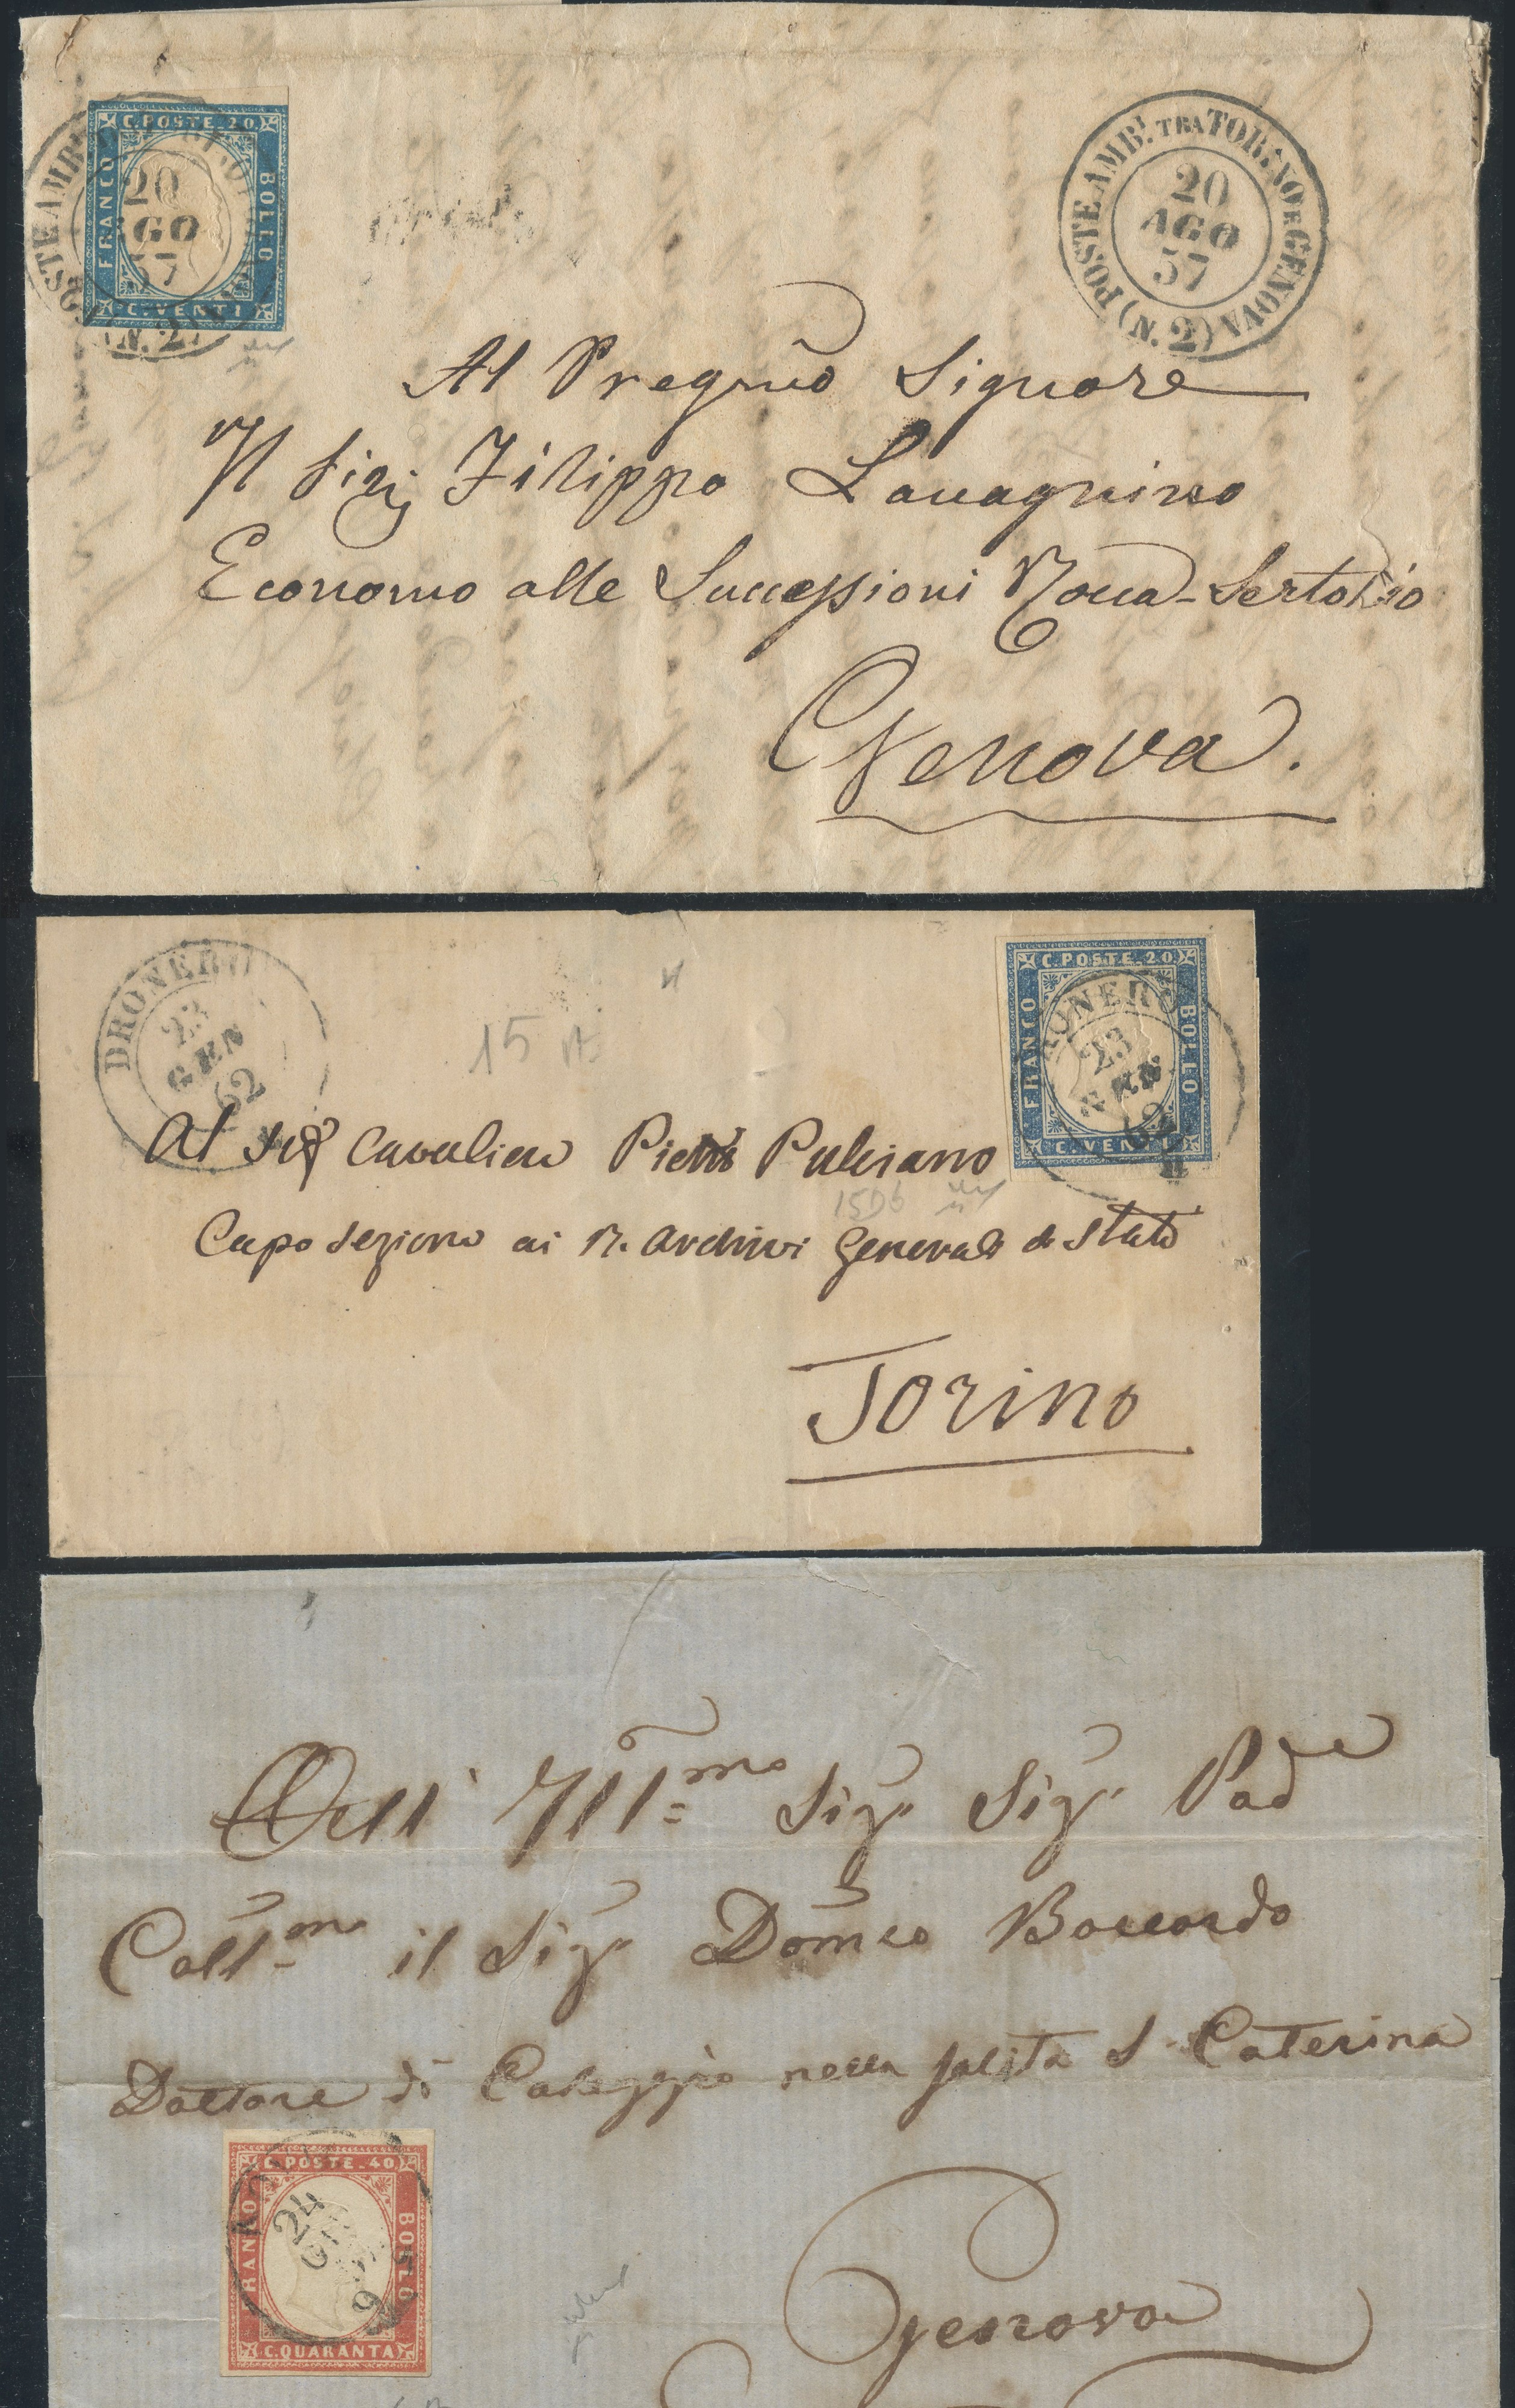 C. POSTE. 20.
FRANCO
BOLLO
C. VENTI
POSTE AMB
20
AGO
57
(N. 2)
POSTE AMB. TRA TORINO E GENOVA (N. 2)
20
AGO
57
Al Pregmo Signore
Il Sig. Filippo Lavagnino
Economo alle Successioni Rocca-Sertorio
Genova.
DRONERO
23
GEN
62
15
C. POSTE. 20.
FRANCO
BOLLO
C. VENTI
DRONERO
23
GEN
62
Al Sigr Cavaliere Pietro Pulciano
15Db
Capo Sezione ai R. Archivi Generali di Stato
Torino
Dell' Illmo Sigr Sigr Padre
Collmo il Sigr Domco Boccardo
Dottore di Colleggio nella salita S. Caterina
C. POSTE. 40
FRANCO
BOLLO
C. QUARANTA
24
Genova